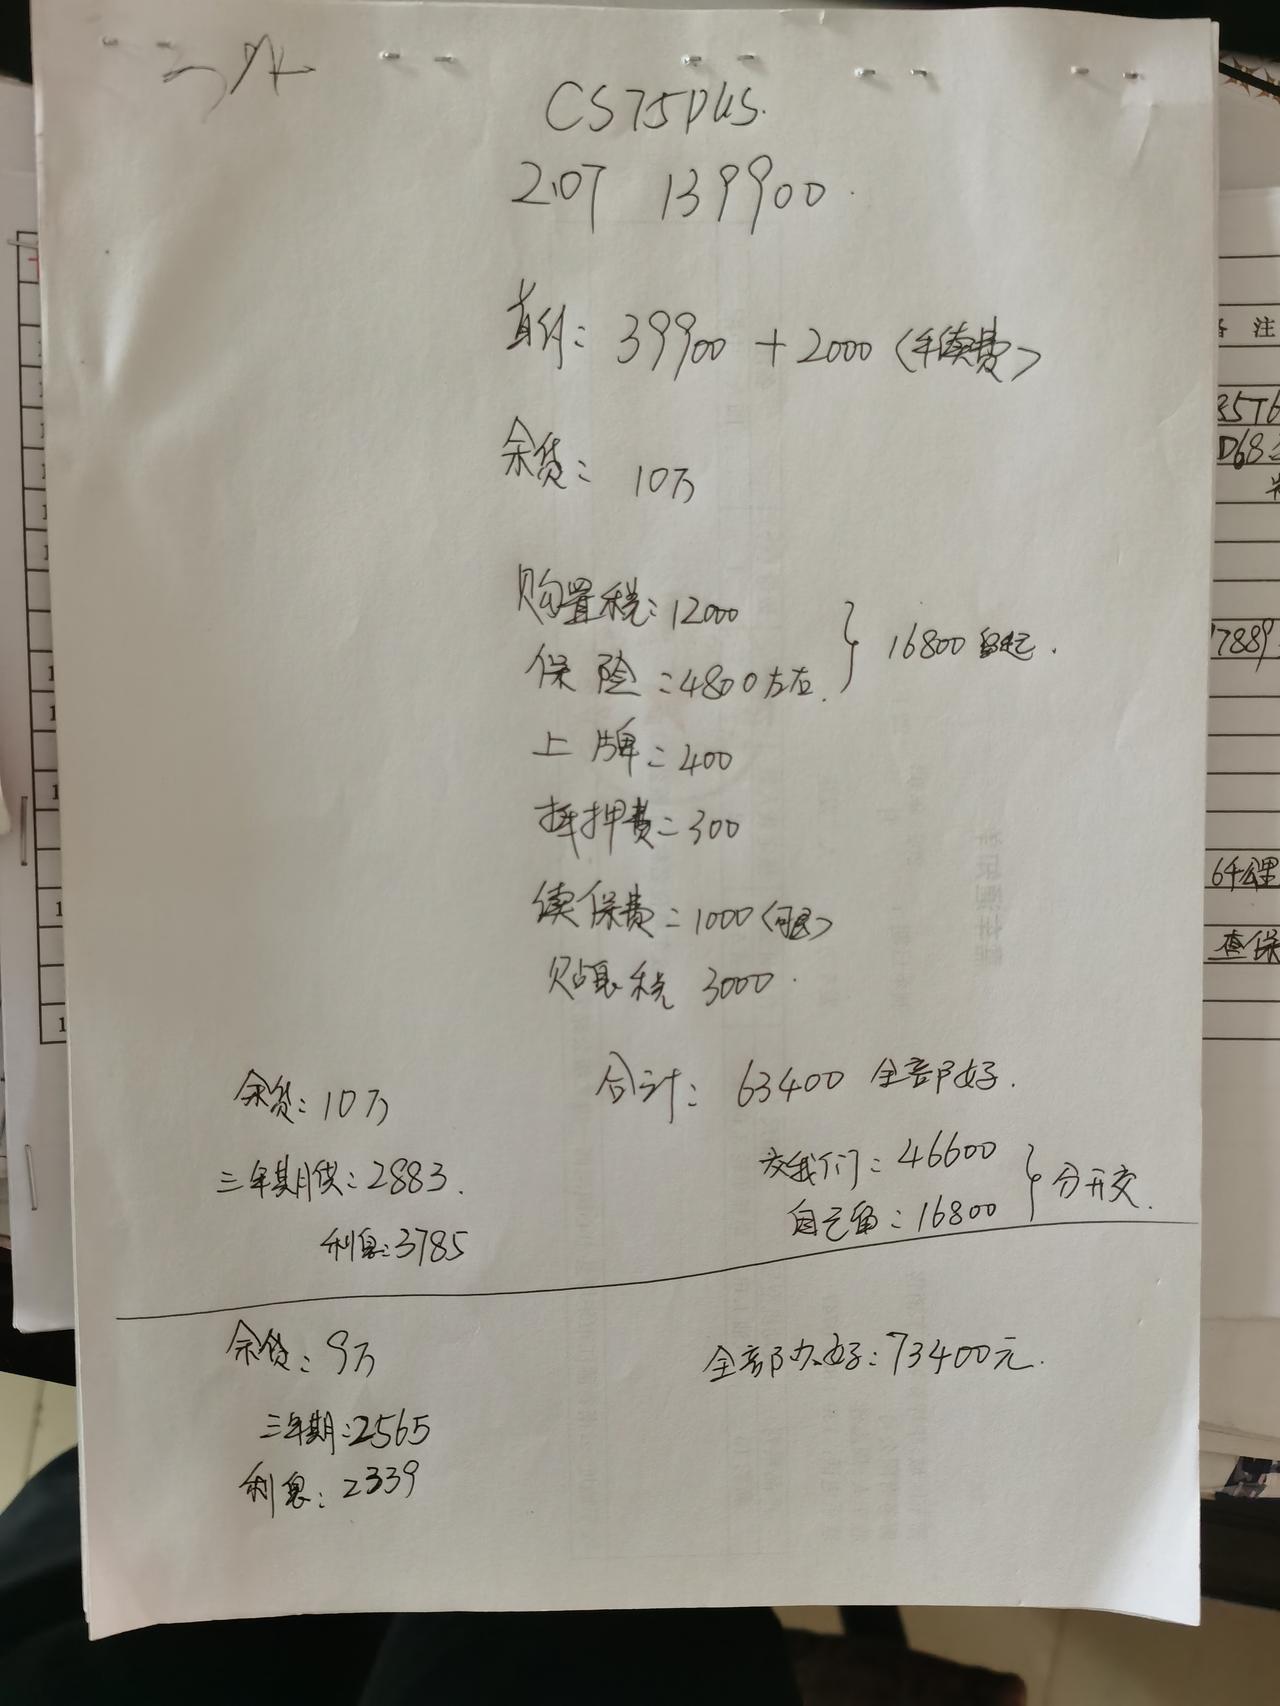 CS75plus.
2.0T 139900.
首付: 39900 + 2000 (手续费)
余贷: 10万
购置税: 12000
保险: 4800左右.
16800 自己.
上牌: 400
抵押费: 300
续保费: 1000 (可退)
贴息税 3000.
合计: 63400 全部办好.
交我们: 46600
自己留: 16800
分开交.
余贷: 10万
三年期月供: 2883.
利息: 3785
余贷: 9万
三年期: 2565
利息: 2339
全部办好: 73400元.
备注
35T6
D68
17889
6千公里
查保